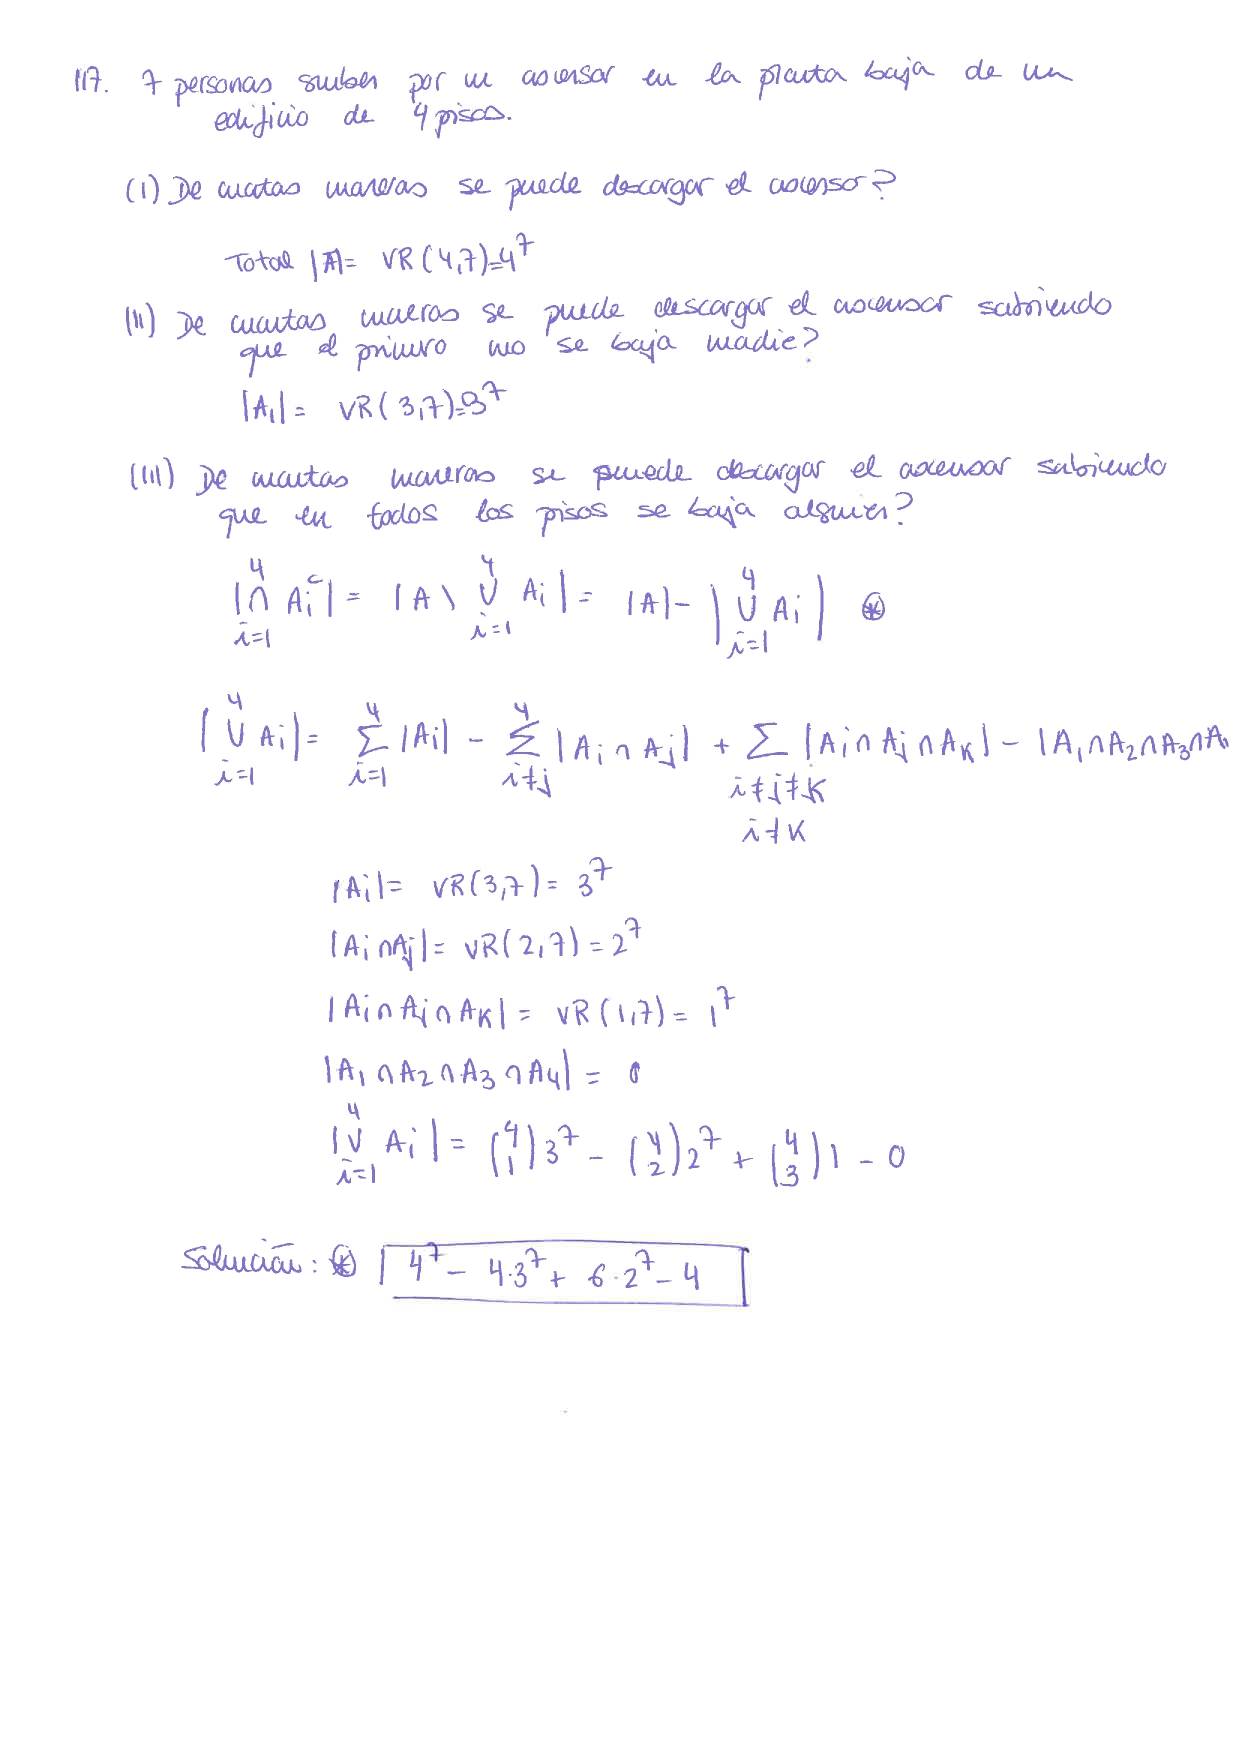 117. 7 personas suben por un ascensor en la planta baja de un
edificio de 4 pisos.
(I) De cuatas maneras se puede descargar el ascensor?
Total |A|= VR(4,7)=4^7
(II) De cuantas maneras se puede descargar el ascensor sabriendo
que el primero no se baja nadie?
|A₁|= VR(3,7)=3^7
(III) De cuantas maneras se puede descargar el ascensor sabriendo
que en todos los pisos se baja alguien?
|∩_{i=1}^{4} A_i^c| = |A \ ∪_{i=1}^{4} A_i| = |A| - |∪_{i=1}^{4} A_i| ⊛
|∪_{i=1}^{4} A_i| = Σ_{i=1}^{4} |A_i| - Σ_{i≠j}^{4} |A_i ∩ A_j| + Σ_{i≠j≠k, i≠k} |A_i ∩ A_j ∩ A_k| - |A₁∩A₂∩A₃∩A
|A_i|= VR(3,7) = 3^7
|A_i ∩ A_j|= VR(2,7) = 2^7
|A_i ∩ A_j ∩ A_k| = VR(1,7) = 1^7
|A₁ ∩ A₂ ∩ A₃ ∩ A₄| = 0
|∪_{i=1}^{4} A_i| = (4 1)3^7 - (4 2)2^7 + (4 3)1 - 0
Solución: ⊛ 4^7 - 4·3^7 + 6·2^7 - 4